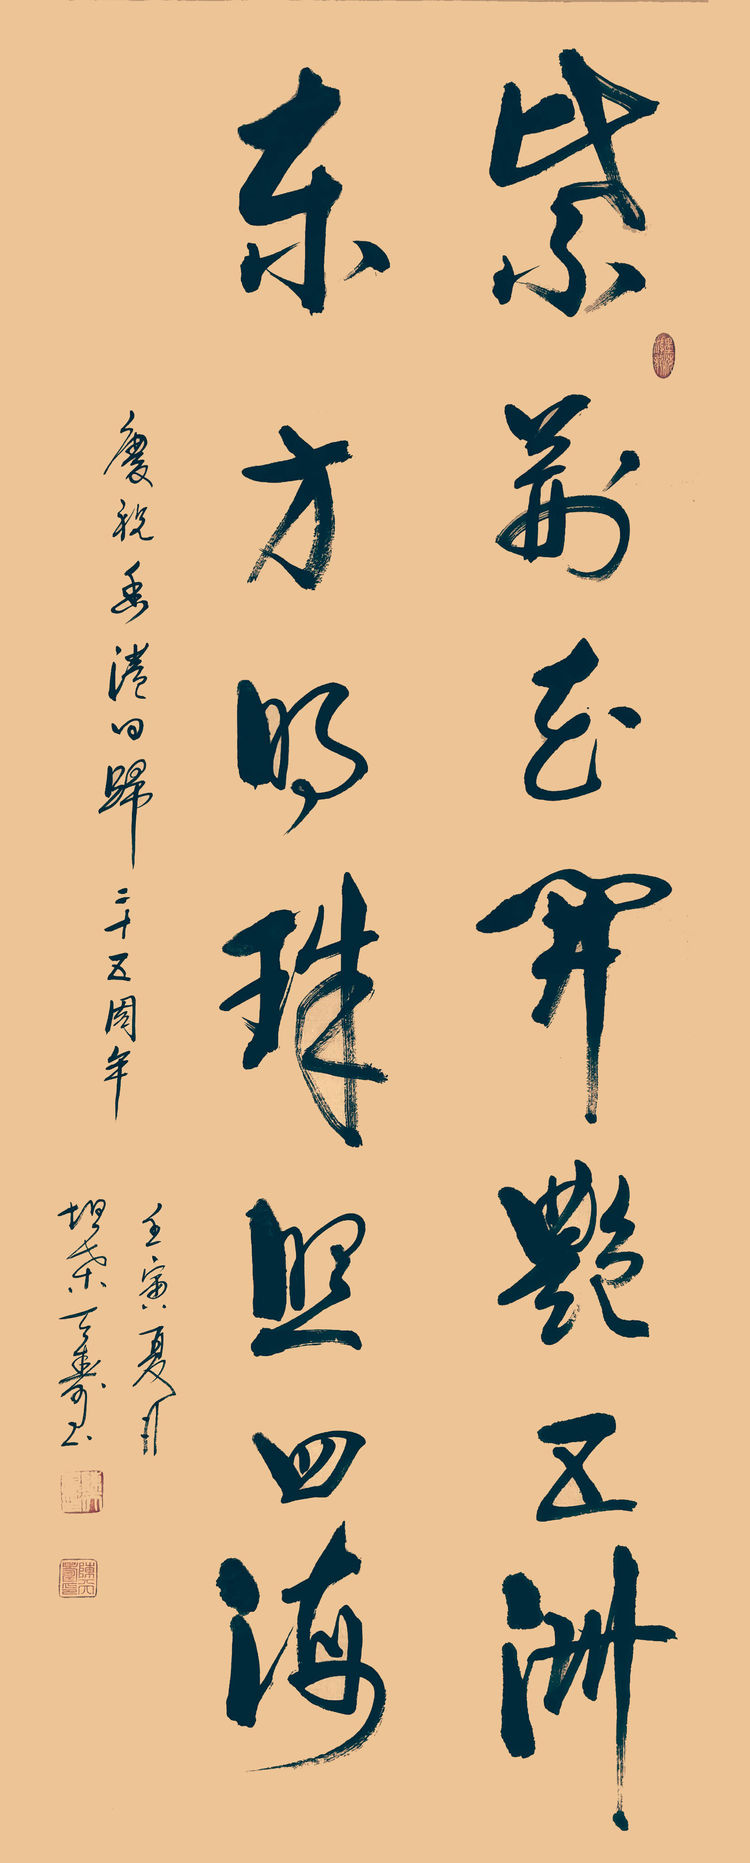 紫荆花开艳五洲
东方明珠照四海
庆祝香港回歸二十五周年
壬寅夏月
天寿书